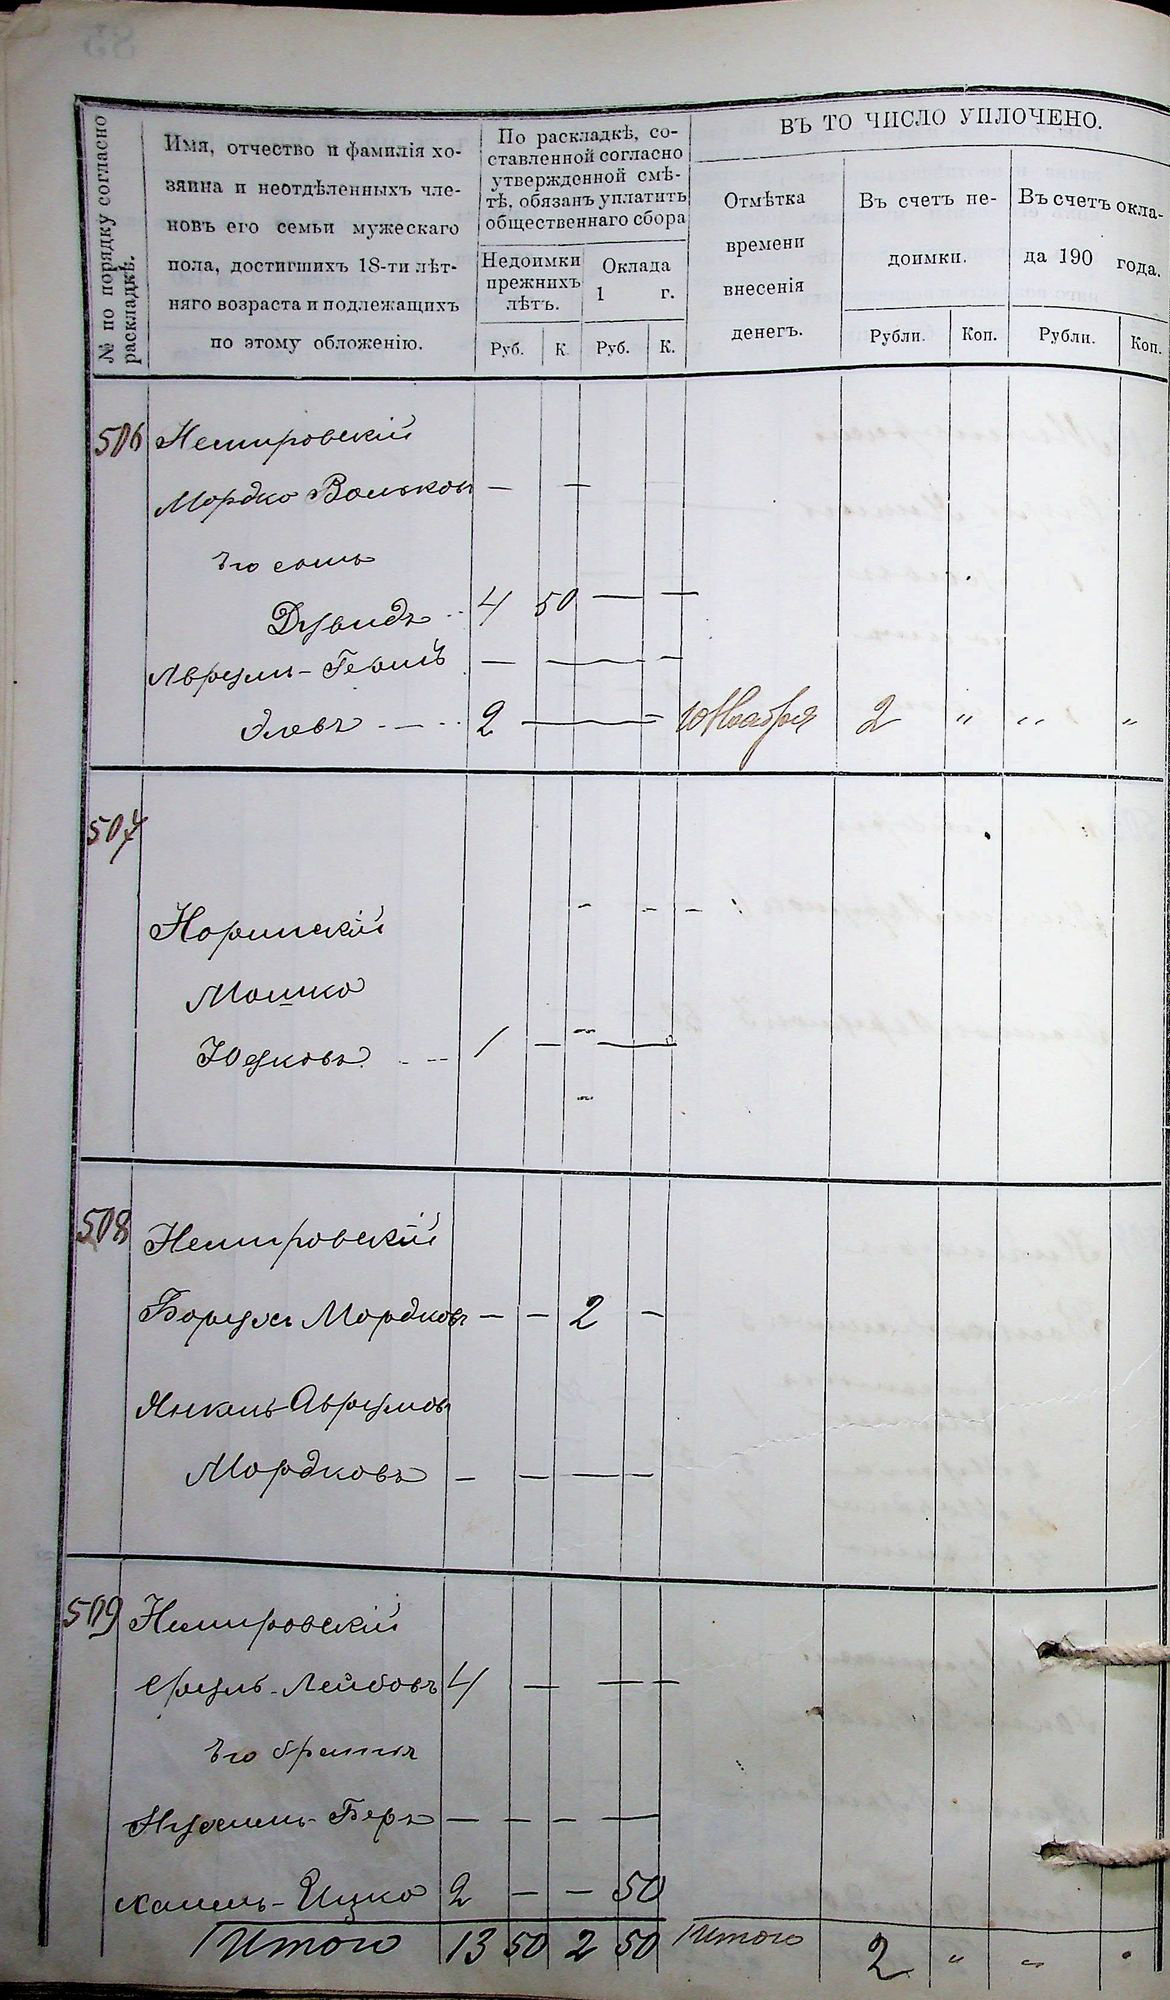 № по порядку согласно
раскладкѣ.
Имя, отчество и фамилія хо-
зяина и неотдѣленныхъ чле-
новъ его семьи мужескаго
пола, достигшихъ 18-ти лѣт-
няго возраста и подлежащихъ
по этому обложенію.
По раскладкѣ, со-
ставленной согласно
утвержденной смѣ-
тѣ, обязанъ уплатить
общественнаго сбора
Недоимки
прежнихъ
лѣтъ.
Оклада
1 г.
Руб. К. Руб. К.
ВЪ ТО ЧИСЛО УПЛОЧЕНО.
Отмѣтка
времени
внесенія
денегъ.
Въ счетъ не-
доимки.
Въ счетъ окла-
да 190 года.
Рубли. Коп. Рубли. Коп.
506 Немировскій
Мордко Вольковъ — —
Его сынъ
Дувидъ 4 50 — —
Аврумъ - — — —
2 — — 10 Ноября 2 " " "
507
Норинскій - - -
Мошко
Юдковъ 1 — —
508 Немировскій
Борухъ Мордковъ — — 2 —
Янкель Аврумовъ
Мордковъ — — — —
509 Немировскій
Сруль - Лейбовъ 4 — — —
Его братья
Нусинъ - Беръ — — — —
Хаимъ - Ицко 2 — — 50
Итого 13 50 2 50 Итого 2 " "